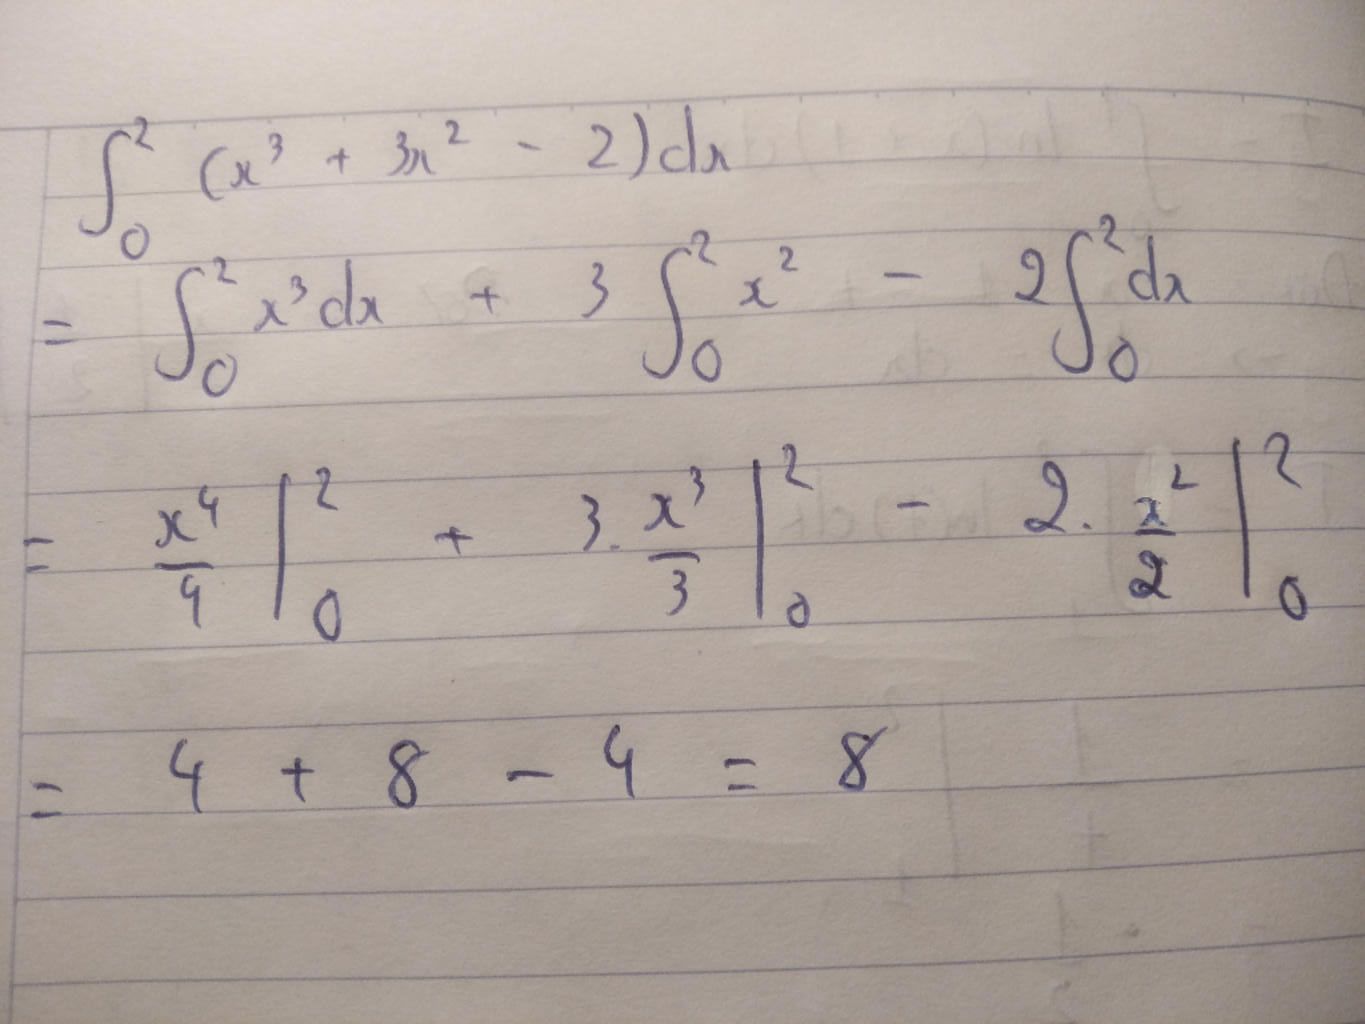 ∫₀² (x³ + 3x² - 2)dx
= ∫₀² x³dx + 3 ∫₀² x² - 2∫₀² dx
= x⁴/4 |₀² + 3. x³/3 |₀² - 2. x²/2 |₀²
= 4 + 8 - 4 = 8